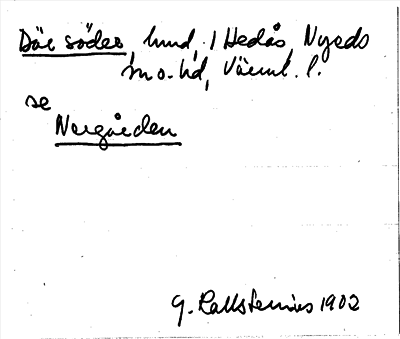 Där söder, hmd, 1 Hedås, Nyeds
sn o. hd, Värml. l.
se
Norgården
G. Kallstenius 1902